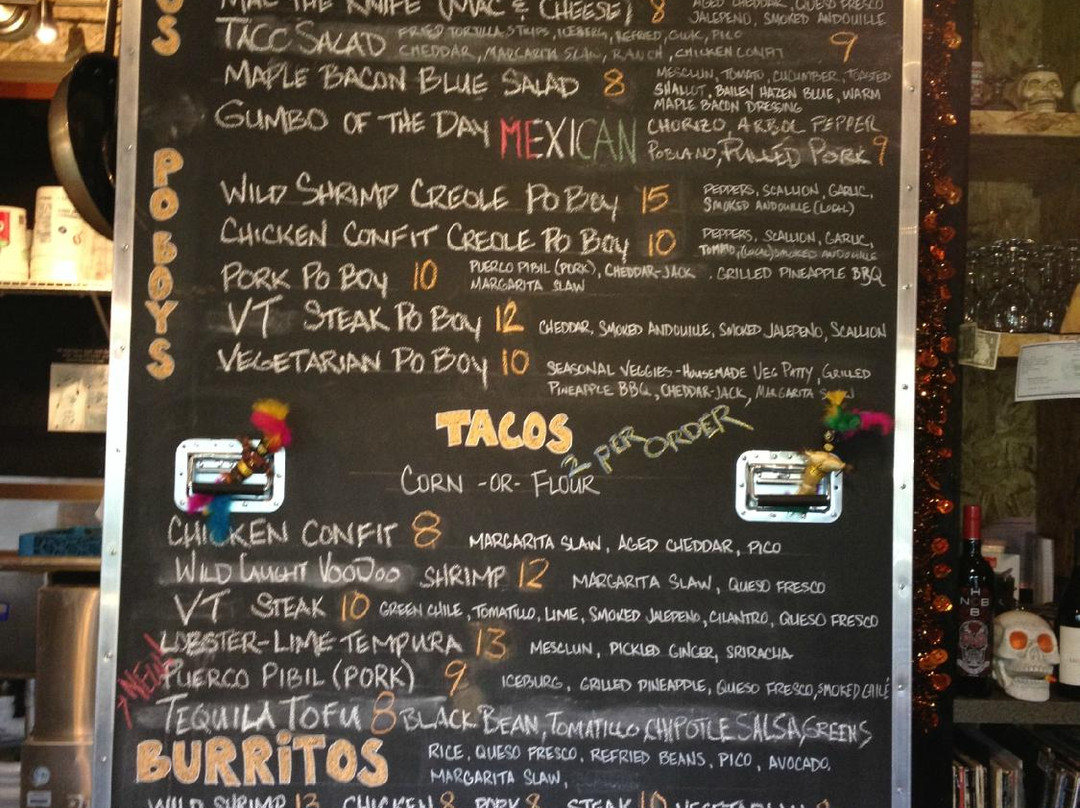 MAC THE KNIFE (MAC & CHEESE) 8 AGED CHEDDAR, QUESO FRESCO
JALEPENO, SMOKED ANDOUILLE
TACO SALAD FRIED TORTILLA STRIPS, ICEBERG, REFRIED, GUAK, PICO
CHEDDAR, MARGARITA SLAW, RANCH, CHICKEN CONFIT 9
MAPLE BACON BLUE SALAD 8 MESCLUN, TOMATO, CUCUMBER, TOASTED
SHALLOT, BAILEY HAZEN BLUE, WARM
MAPLE BACON DRESSING
GUMBO OF THE DAY MEXICAN CHORIZO, ARBOL PEPPER
POBLANO, PULLED PORK 9
PO BOYS
WILD SHRIMP CREOLE PO BOY 15 PEPPERS, SCALLION, GARLIC,
SMOKED ANDOUILLE (LOCAL)
CHICKEN CONFIT CREOLE PO BOY 10 PEPPERS, SCALLION, GARLIC,
TOMATO, (LOCAL) SMOKED ANDOUILLE
PORK PO BOY 10 PUERCO PIBIL (PORK), CHEDDAR-JACK, GRILLED PINEAPPLE BBQ
MARGARITA SLAW
VT STEAK PO BOY 12 CHEDDAR, SMOKED ANDOUILLE, SMOKED JALEPENO, SCALLION
VEGETARIAN PO BOY 10 SEASONAL VEGGIES-HOUSEMADE VEG PATTY, GRILLED
PINEAPPLE BBQ, CHEDDAR-JACK, MARGARITA
TACOS 2 PER ORDER
CORN -OR- FLOUR
CHICKEN CONFIT 8 MARGARITA SLAW, AGED CHEDDAR, PICO
WILD CAUGHT VOODOO SHRIMP 12 MARGARITA SLAW, QUESO FRESCO
VT STEAK 10 GREEN CHILE, TOMATILLO, LIME, SMOKED JALEPENO, CILANTRO, QUESO FRESCO
LOBSTER-LIME TEMPURA 13 MESCLUN, PICKLED GINGER, SRIRACHA
NEW! PUERCO PIBIL (PORK) 9 ICEBURG, GRILLED PINEAPPLE, QUESO FRESCO, SMOKED CHILE
TEQUILA TOFU 8 BLACK BEAN, TOMATILLO, CHIPOTLE SALSA, GREENS
BURRITOS RICE, QUESO FRESCO, REFRIED BEANS, PICO, AVOCADO,
MARGARITA SLAW,
WILD SHRIMP 13 CHICKEN 8 PORK 8 STEAK 10 VEGETARIAN